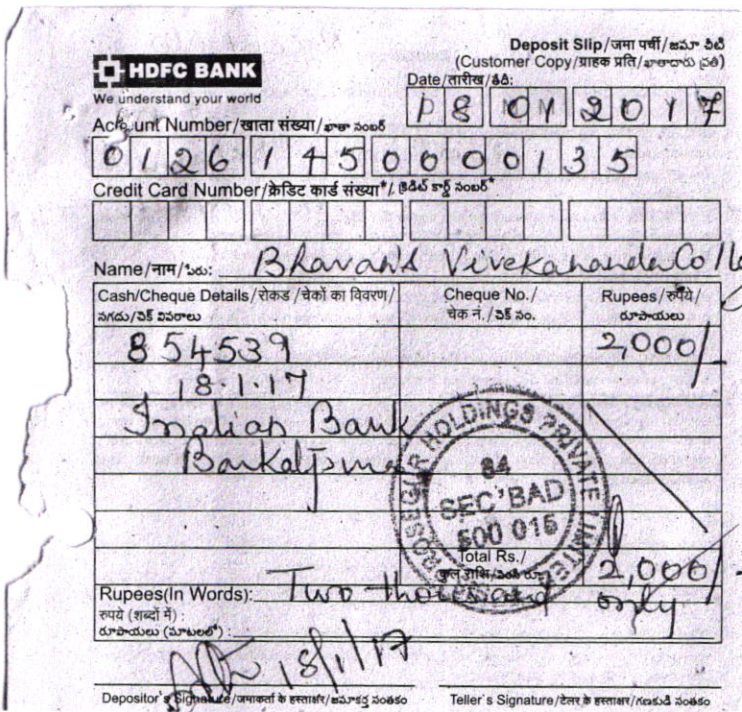 Deposit Slip/जमा पर्ची/జమా చీటి
(Customer Copy/ग्राहक प्रति/ఖాతాదారు ప్రతి)
HDFC BANK
We understand your world
Date/तारीख/తేది:
18 01 2017
Account Number/खाता संख्या/ఖాతా నంబర్
01261450000135
Credit Card Number/क्रेडिट कार्ड संख्या*/క్రెడిట్ కార్డ్ నంబర్*
Name/नाम/పేరు: Bhavan's Vivekananda Colle
Cash/Cheque Details/रोकड/चेकों का विवरण/ Cheque No./ Rupees/रुपये/
నగదు/చెక్ వివరాలు चेक नं./చెక్ నం. రూపాయలు
854539 2,000/-
18.1.17
Indian Bank
ROSEGUAR HOLDINGS PRIVATE LIMITE
84
SEC'BAD
500 016
Total Rs./
कुल राशि/ 2,000/-
Rupees(In Words): Two thousand only
रुपये (शब्दों में) :
రూపాయలు (మాటలలో) :
18/1/17
Depositor's Signature/जमाकर्ता के हस्ताक्षर/జమాకర్త సంతకం Teller's Signature/टेलर के हस्ताक्षर/గణకుడి సంతకం